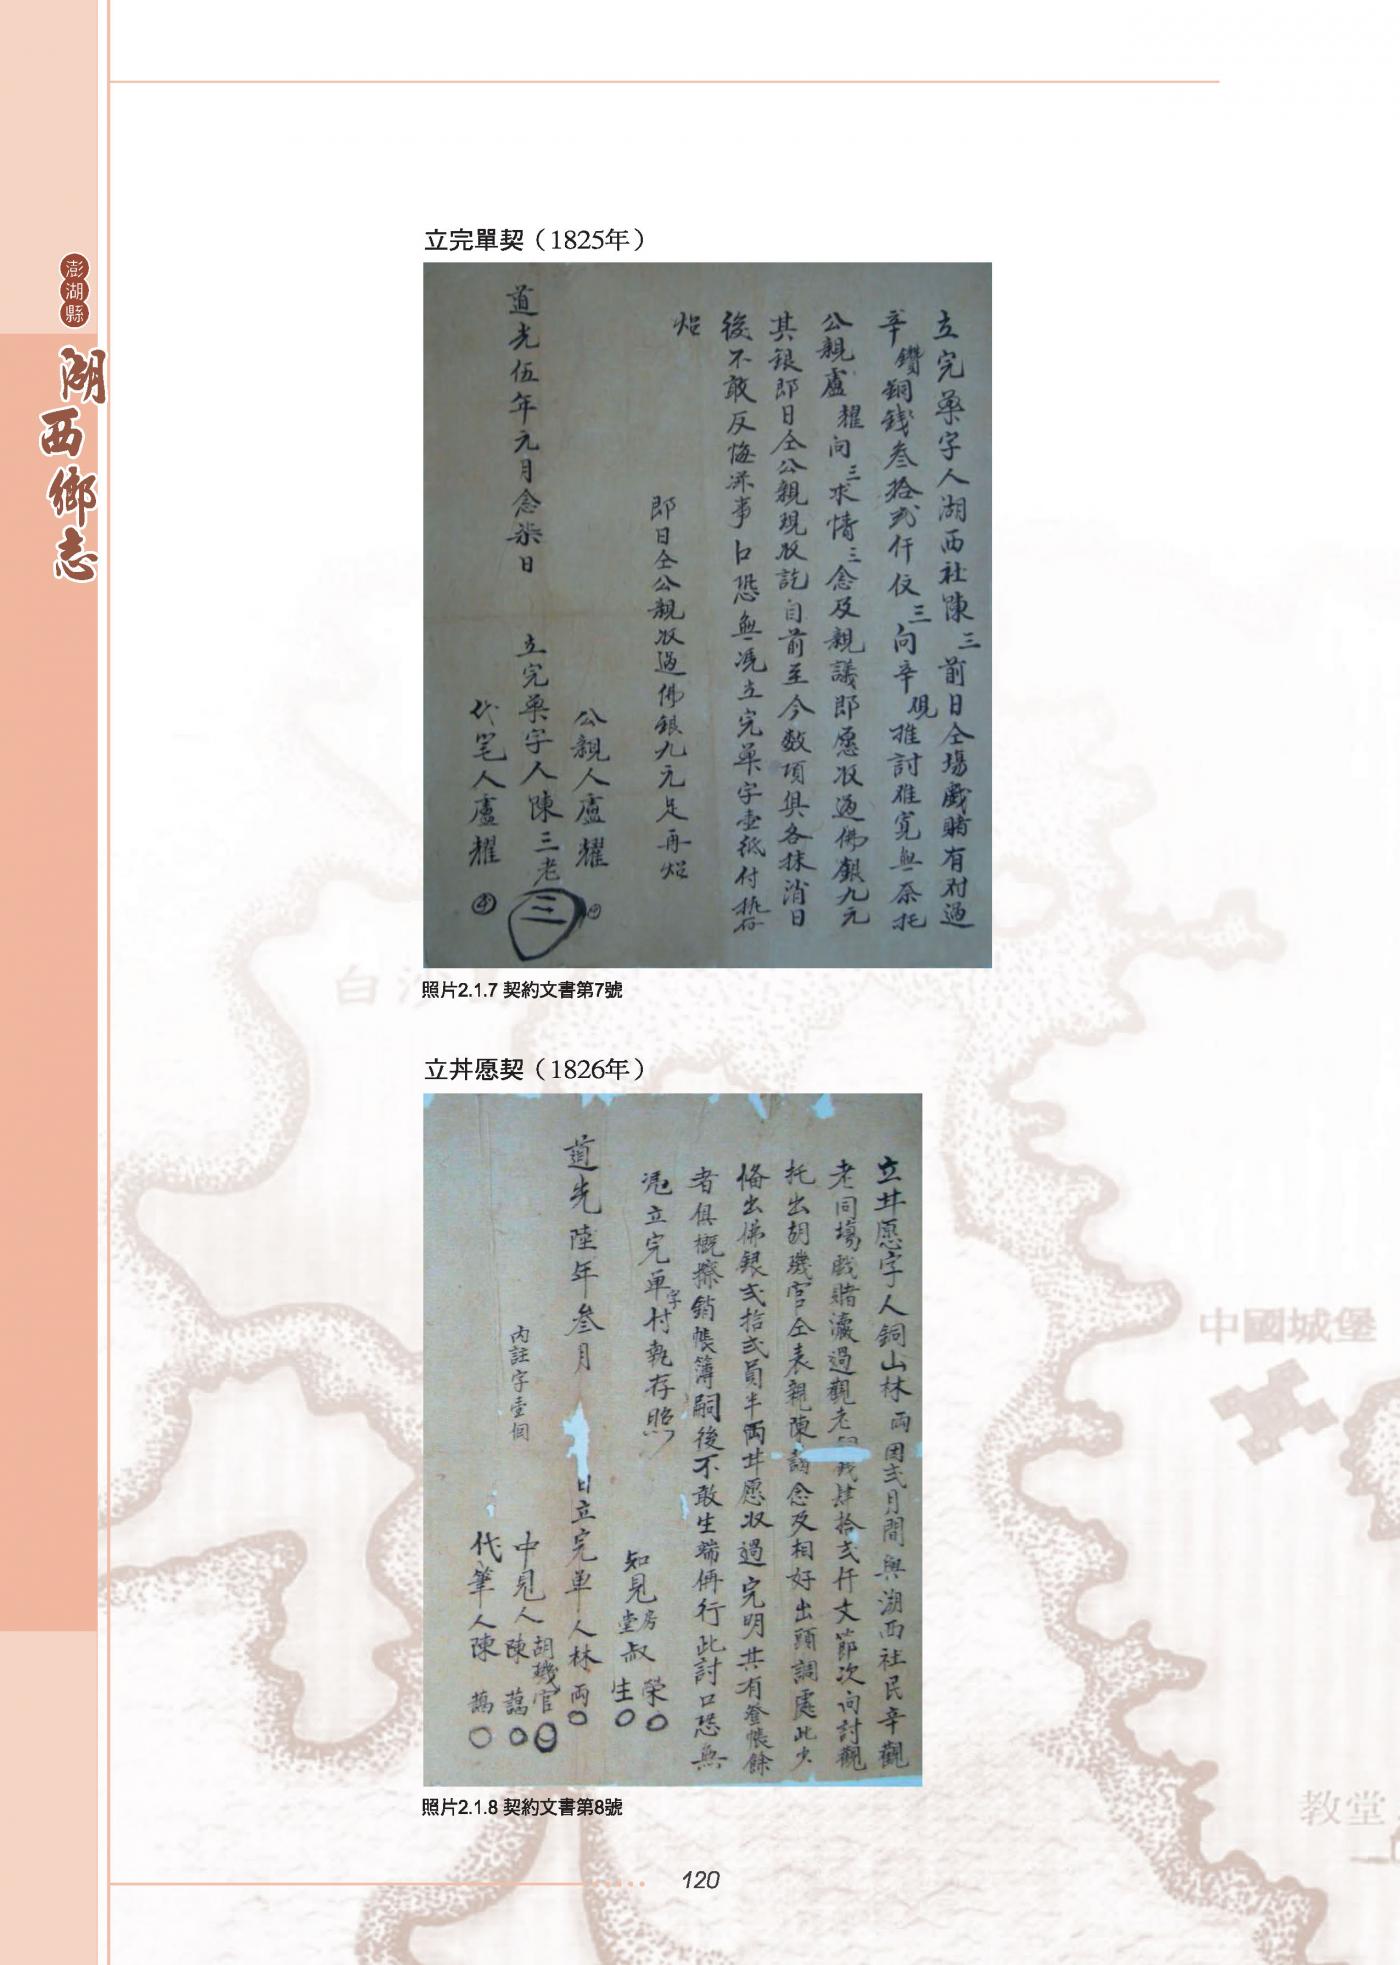 澎湖縣
湖西鄉志
立完單契（1825年）
立完單字人湖西社陳三前日仝塲戲賭有对過
辛鑽銅錢叁拾弍仟仅三向辛觀推討难寬無奈托
公親盧耀向三求情三念及親議即愿收過佛銀九元
其銀即日仝公親現收訖自前至今数項俱各抹消日
後不敢反悔滋事口恐無馮立完单字壹紙付执存
炤
即日仝公親收過佛銀九元足再炤
公親人盧耀
道光伍年元月念柒日 立完单字人陳三老
三
代笔人盧耀
照片2.1.7 契約文書第7號
立丼愿契（1826年）
立丼愿字人銅山林両因弍月間與湖西社民辛觀
老同塲戲賭瀛過觀老錢肆拾弍仟文節次向討觀
托出胡璣官仝表親陳藹念及相好出頭調處此少
俻出佛銀弍拾弍員半両丼愿收過完明共有登帳餘
者俱概擦銷帳簿嗣後不敢生端併行此討口恐無
馮立完单字付執存照
知見房叔榮
堂生
道光陸年叁月 日立完单人林両
內註字壹個
中見人胡璣官
陳藹
代筆人陳藹
照片2.1.8 契約文書第8號
白沙
中國城堡
教堂
120